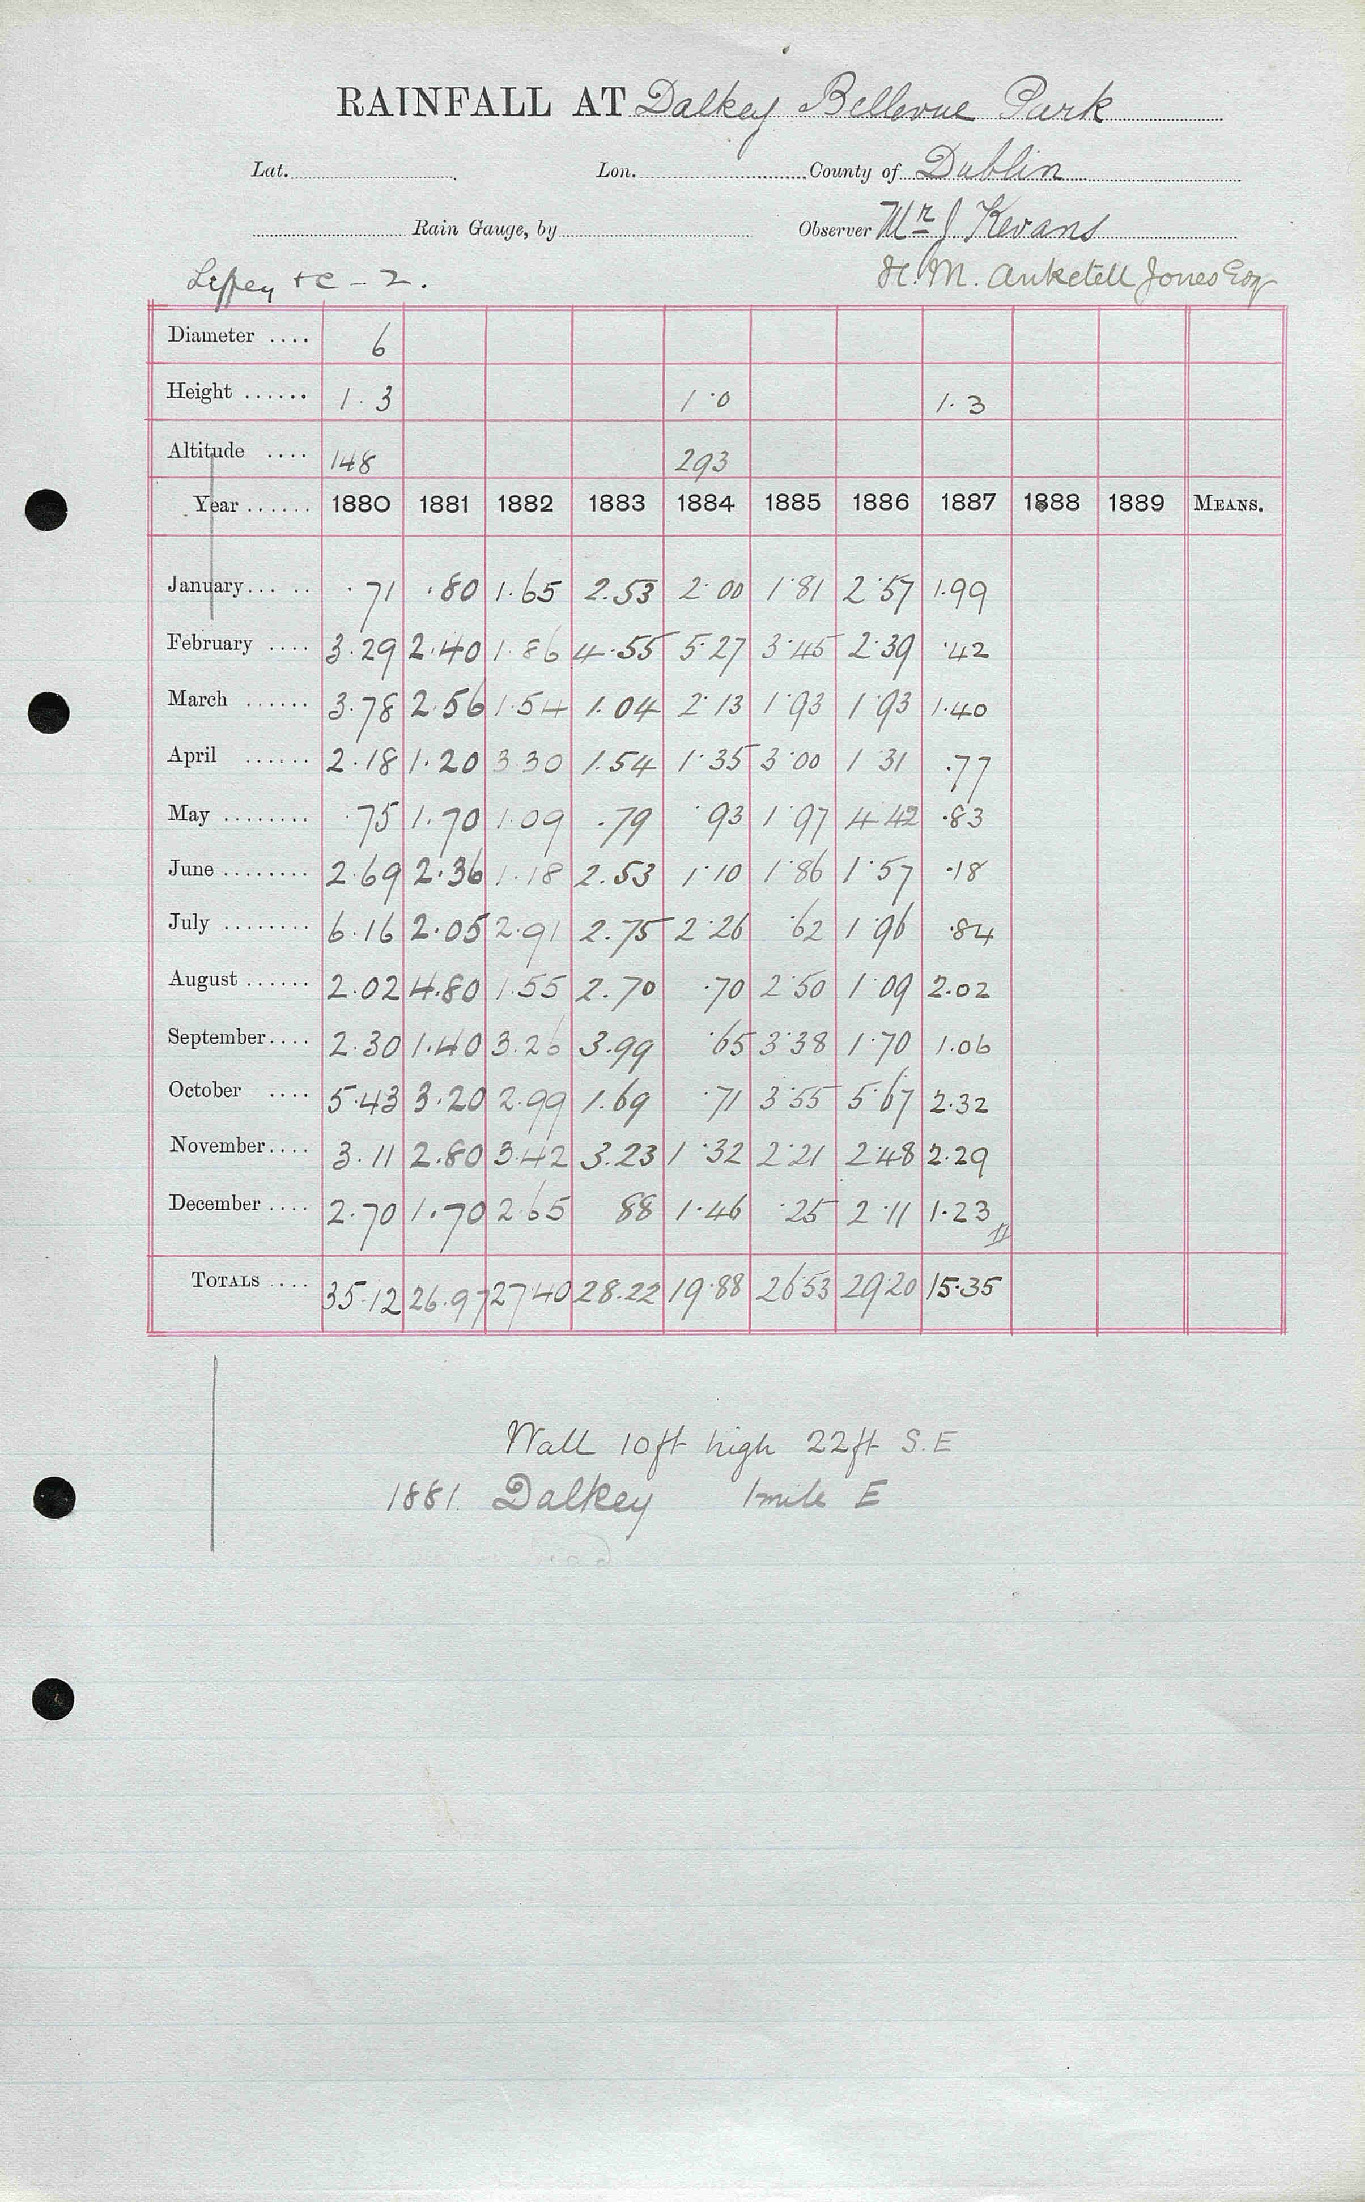 RAINFALL AT Dalkey Bellevue Park
Lat. Lon. County of Dublin
Rain Gauge, by Observer Mr J Kevans
Liffey + C - 2. H. M. Anketell Jones Esq
Diameter .... 6
Height ...... 1.3 1.0 1.3
Altitude .... 148 293
Year ...... 1880 1881 1882 1883 1884 1885 1886 1887 1888 1889 MEANS.
January ..... .71 .80 1.65 2.53 2.00 1.81 2.57 1.99
February .... 3.29 2.40 1.86 4.55 5.27 3.45 2.39 .42
March ...... 3.78 2.56 1.54 1.04 2.13 1.93 1.93 1.40
April ...... 2.18 1.20 3.30 1.54 1.35 3.00 1.31 .77
May ........ .75 1.70 1.09 .79 .93 1.97 4.42 .83
June ........ 2.69 2.36 1.18 2.53 1.10 1.86 1.57 .18
July ........ 6.16 2.05 2.91 2.75 2.26 .62 1.96 .84
August ...... 2.02 4.80 1.55 2.70 .70 2.50 1.09 2.02
September .... 2.30 1.40 3.26 3.99 .65 3.38 1.70 1.06
October .... 5.43 3.20 2.99 1.69 .71 3.55 5.67 2.32
November .... 3.11 2.80 3.42 3.23 1.32 2.21 2.48 2.29
December .... 2.70 1.70 2.65 88 1.46 .25 2.11 1.23
TOTALS .... 35.12 26.97 27.40 28.22 19.88 26.53 29.20 15.35
Wall 10ft high 22ft S.E
1881. Dalkey 1 mile E